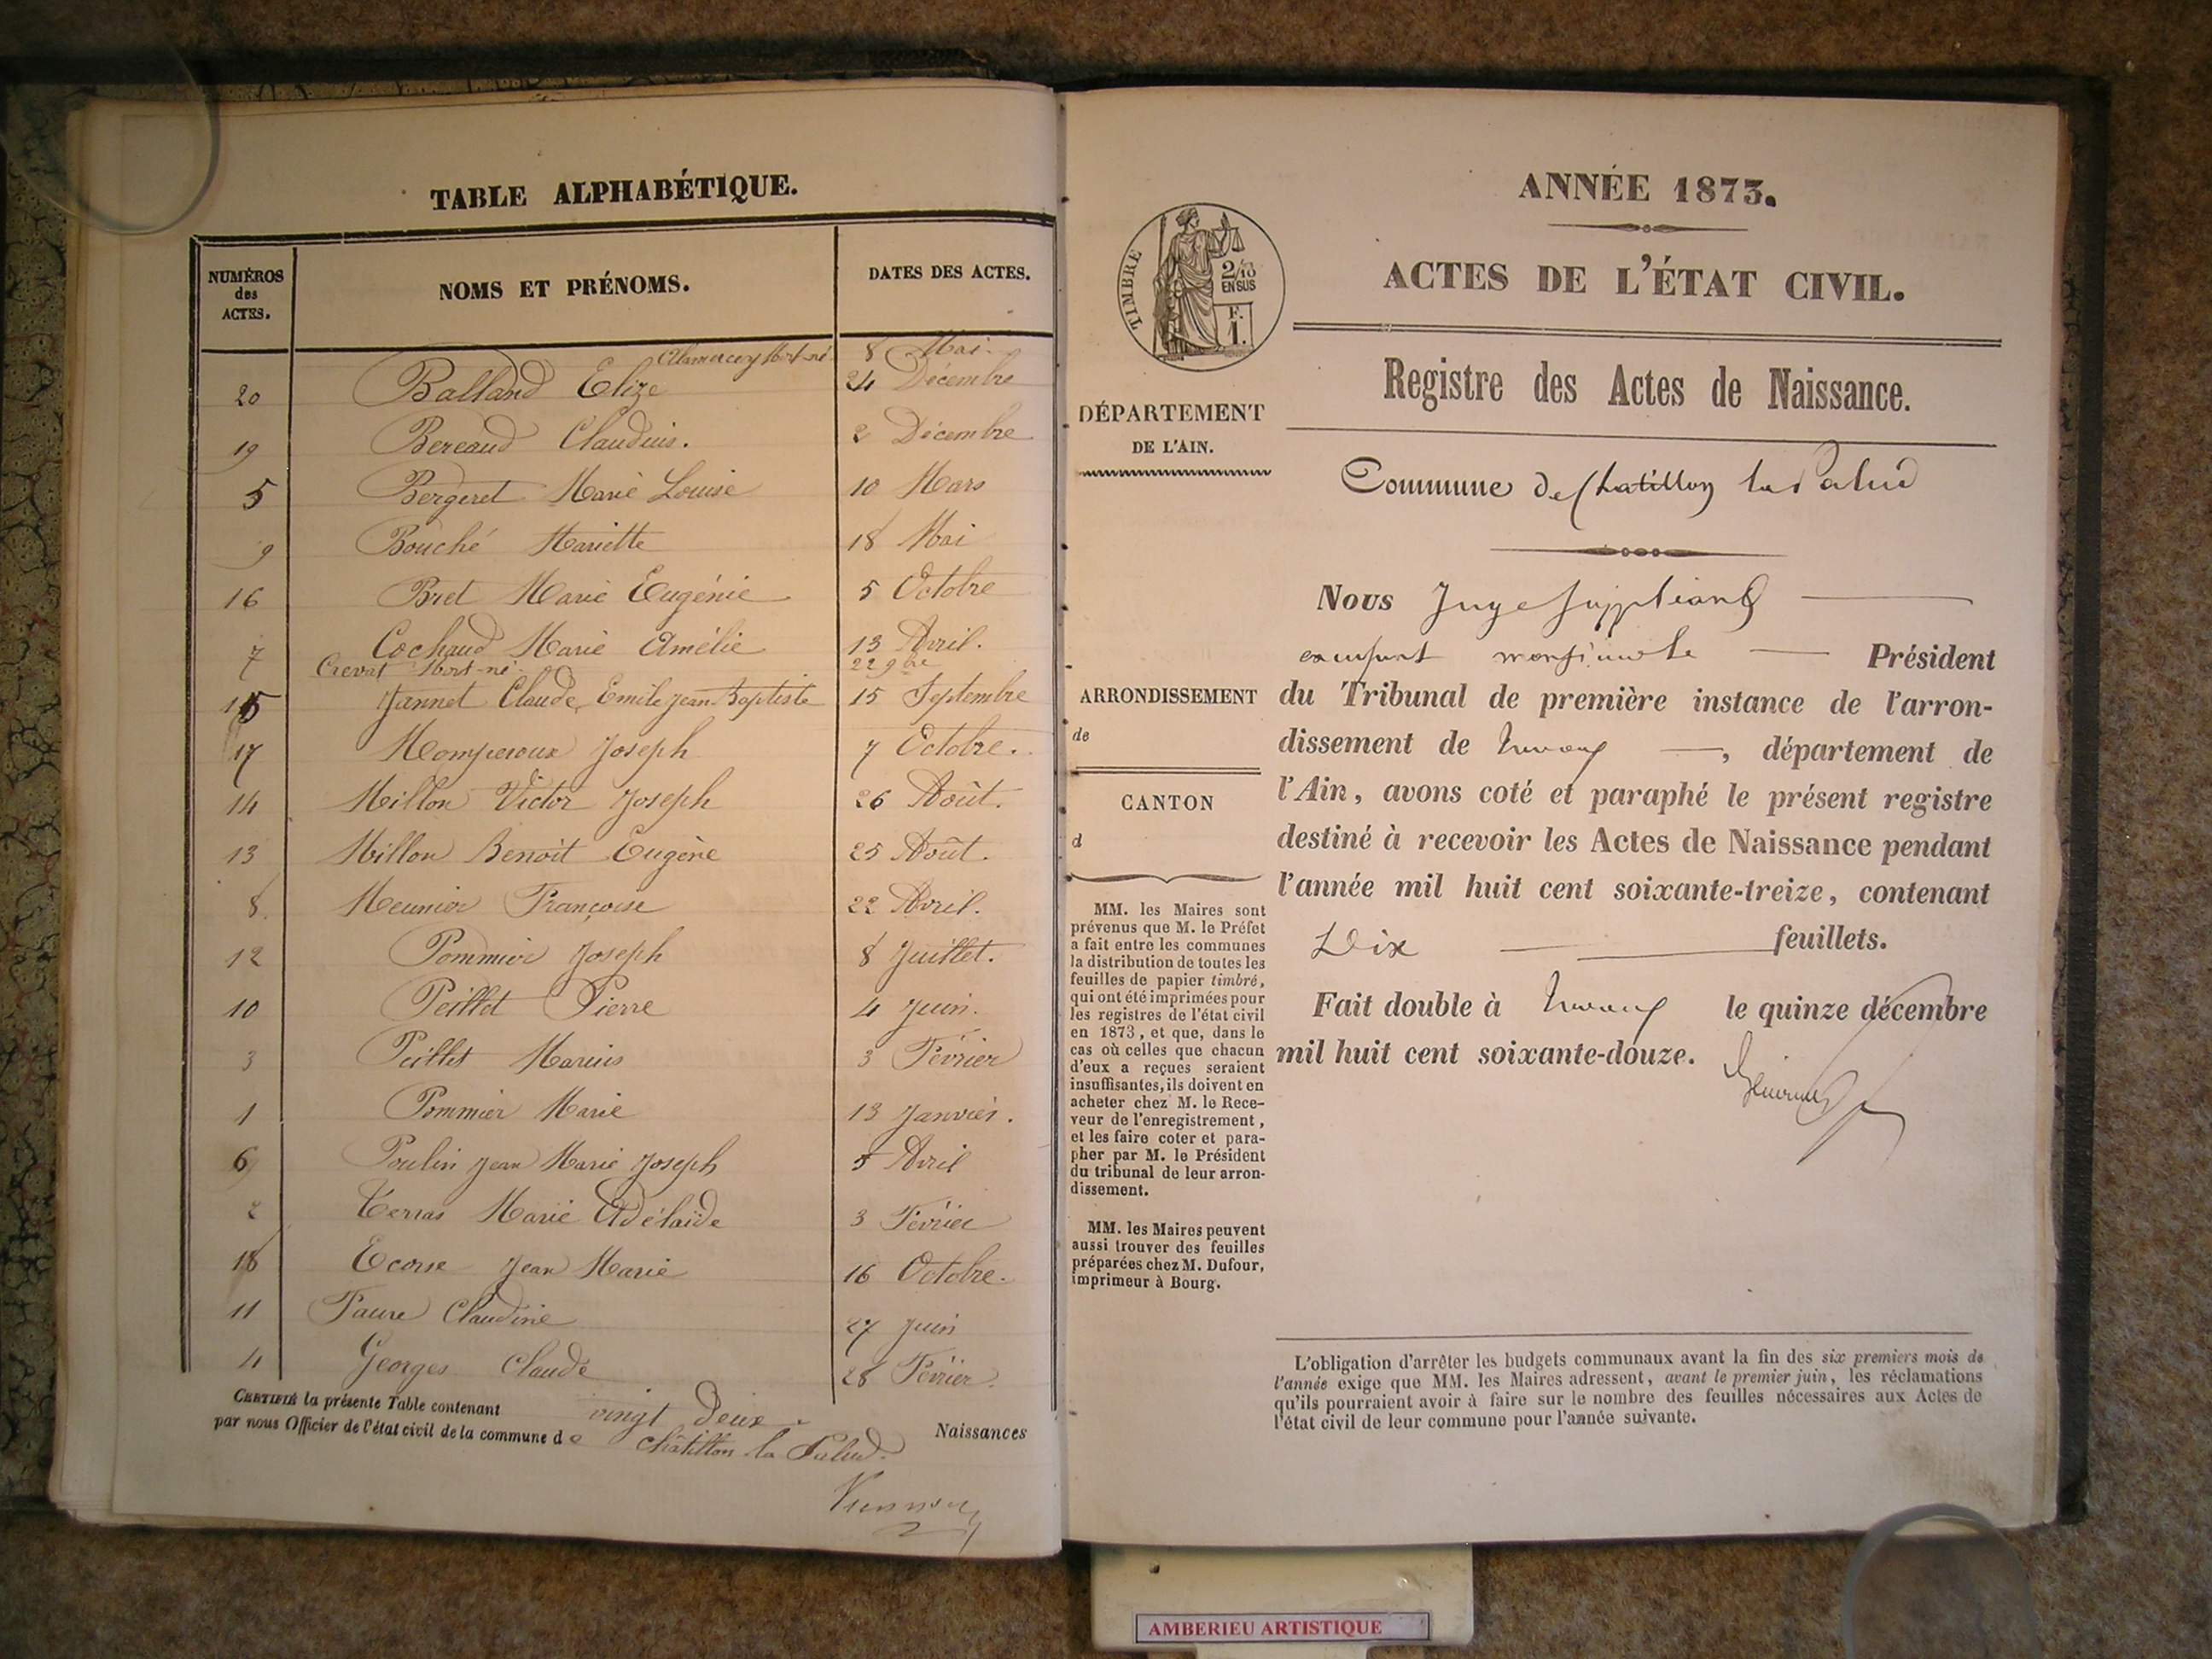 TABLE ALPHABÉTIQUE.
NUMÉROS
des
ACTES.
NOMS ET PRÉNOMS.
DATES DES ACTES.
Mort-né 8 Mai.
20 Balland Elize 24 Décembre
19 Bereaud Claudius. 2 Décembre
5 Bergeret Marie Louise 10 Mars
9 Bouché Mariette 18 Mai
16 Bret Marie Eugénie 5 Octobre
7 Cochaud Marie Amélie 13 Avril.
Crevat Mort-né 22 9bre
15 Jannet Claude Emile Jean Baptiste 15 Septembre
17 Joseph 7 Octobre.
14 Millon Victor Joseph 26 Août.
13 Millon Benoit Eugène 25 Août.
8 Meunier Françoise 22 Avril.
12 Pommier Joseph 8 Juillet.
10 Peillet Pierre 4 Juin.
3 Peillet Marius 3 Février
1 Pommier Marie 13 Janvier.
6 Poulin Jean Marie Joseph 5 Avril
2 Terras Marie Adélaïde 3 Février
18 Ecorse Jean Marie 16 Octobre.
11 Faure Claudine 27 Juin
4 Georges Claude 28 Février.
CERTIFIÉ la présente Table contenant vingt deux Naissances
par nous Officier de l'état civil de la commune de Châtillon la Palud.
TIMBRE
2/10
EN SUS
F.
1.
DÉPARTEMENT
DE L'AIN.
ARRONDISSEMENT
de
CANTON
d
MM. les Maires sont
prévenus que M. le Préfet
a fait entre les communes
la distribution de toutes les
feuilles de papier timbré,
qui ont été imprimées pour
les registres de l'état civil
en 1873, et que, dans le
cas où celles que chacun
d'eux a reçues seraient
insuffisantes, ils doivent en
acheter chez M. le Rece-
veur de l'enregistrement,
et les faire coter et para-
pher par M. le Président
du tribunal de leur arron-
dissement.
MM. les Maires peuvent
aussi trouver des feuilles
préparées chez M. Dufour,
imprimeur à Bourg.
ANNÉE 1873.
ACTES DE L'ÉTAT CIVIL.
Registre des Actes de Naissance.
Commune de Chatillon la Palud
Nous Juge Suppléant
Président
du Tribunal de première instance de l'arron-
dissement de , département de
l'Ain, avons coté et paraphé le présent registre
destiné à recevoir les Actes de Naissance pendant
l'année mil huit cent soixante-treize, contenant
Dix feuillets.
Fait double à le quinze décembre
mil huit cent soixante-douze.
L'obligation d'arrêter les budgets communaux avant la fin des six premiers mois de
l'année exige que MM. les Maires adressent, avant le premier juin, les réclamations
qu'ils pourraient avoir à faire sur le nombre des feuilles nécessaires aux Actes de
l'état civil de leur commune pour l'année suivante.
AMBERIEU ARTISTIQUE